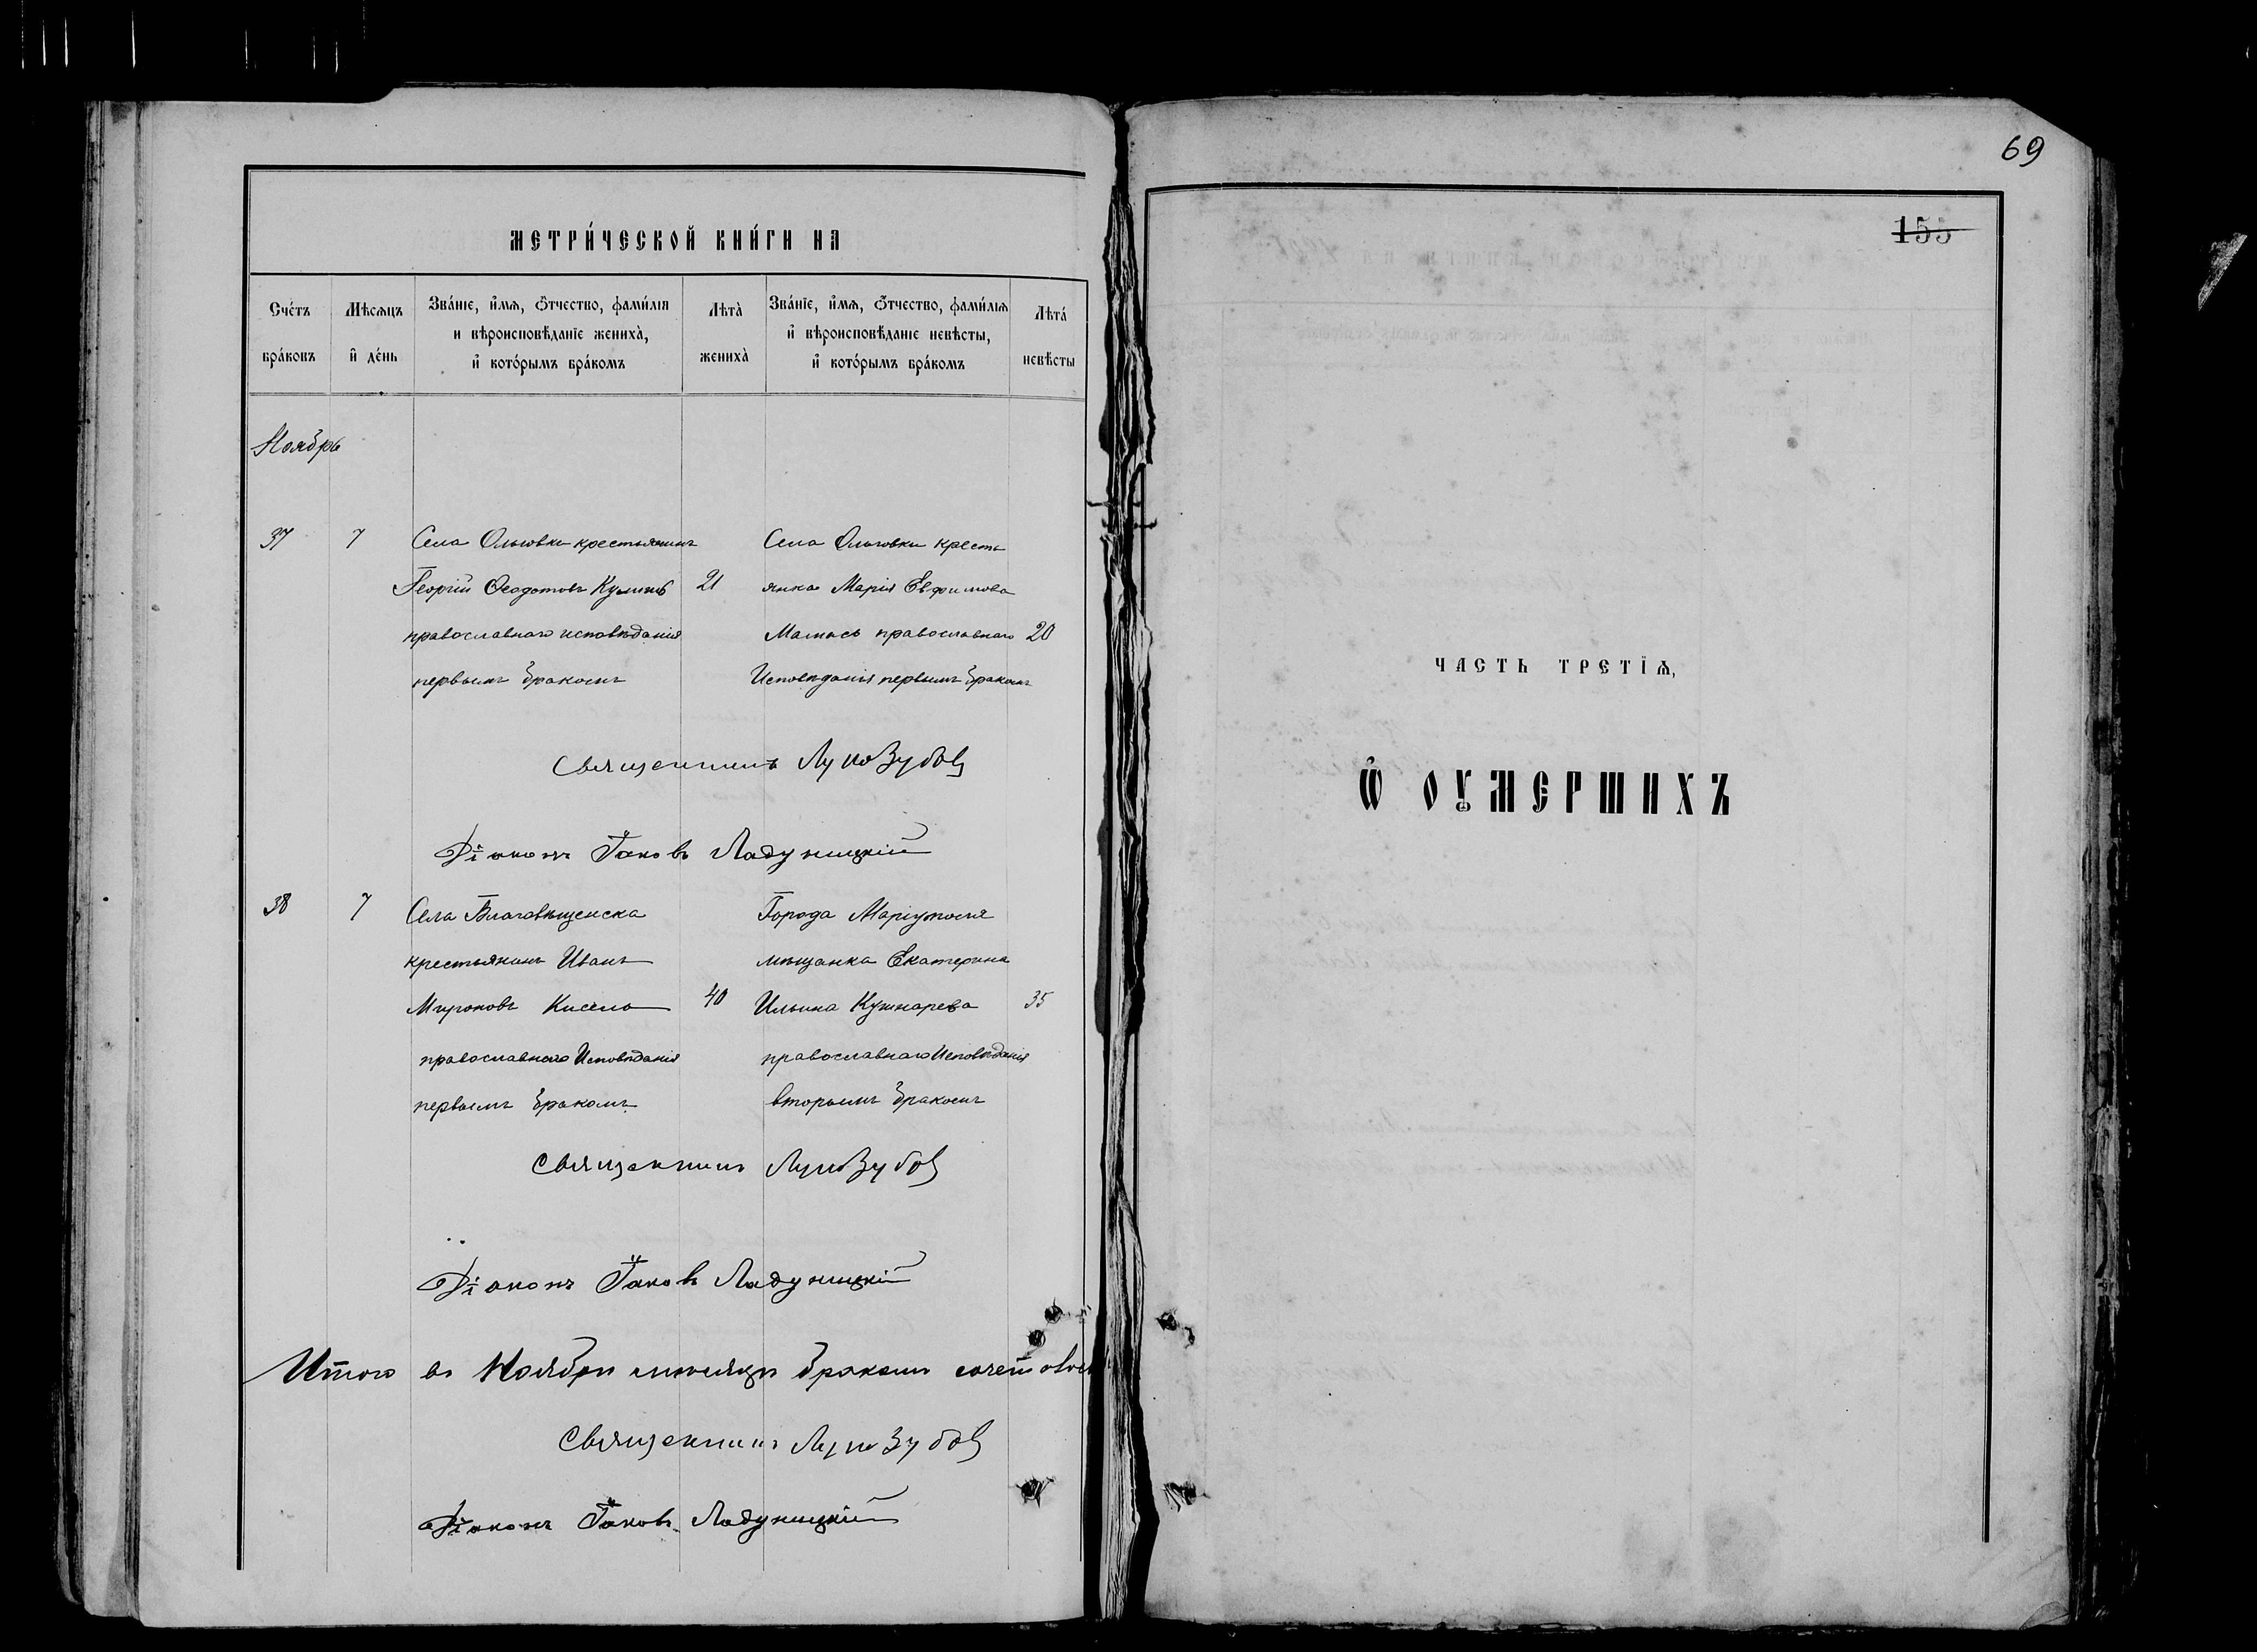 МЕТРИ́ЧЕСКОЙ КНИ́ГИ НА
Сче́тъ
бра́ковъ
Мѣсѧцъ
и҆ де́нь
Зва́нїе, и҆́мѧ, Ѻ҆́тчество, фами́лїѧ
и вѣроисповѣ́данїе женихà,
и҆ кото́рымъ бра́комъ
Лѣтà
женихà
Зва́нїе, и҆́мѧ, Ѻ҆́тчество, фами́лїѧ
и҆ вѣроисповѣ́данїе невѣсты,
и҆ кото́рымъ бра́комъ
Лѣта́
невѣсты
Ноябрь
37 7 Села Ольговки крестьянинъ
Георгій Ѳеодотовъ
православнаго исповѣданія
первымъ бракомъ
21
Села Ольговки кресть
янка Марія Евфимова
православнаго
Исповѣданія первымъ бракомъ
20
Священникъ
Діаконъ Іаковъ Ладуницкій
38 7 Села Благовѣщенска
крестьянинъ Иванъ
Мироновъ
православнаго Исповѣданія
первымъ бракомъ
40
Города Маріуполя
мѣщанка Екатерина
Ильина Кушнарева
православнаго Исповѣданія
вторымъ бракомъ
35
Священникъ
Діаконъ Іаковъ Ладуницкій
Итого въ Ноябрѣ мѣсяцѣ бракомъ
Священникъ
Діаконъ Іаковъ Ладуницкій
69
155
ЧАСТЬ ТРЕТЇѦ,
Ѽ ОУМЕРШИХЪ